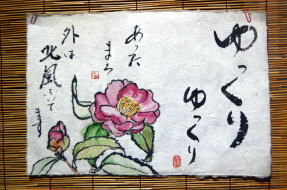 ゆっくり
ゆっくり
あった
まろ
外は
北風ふいて
ます